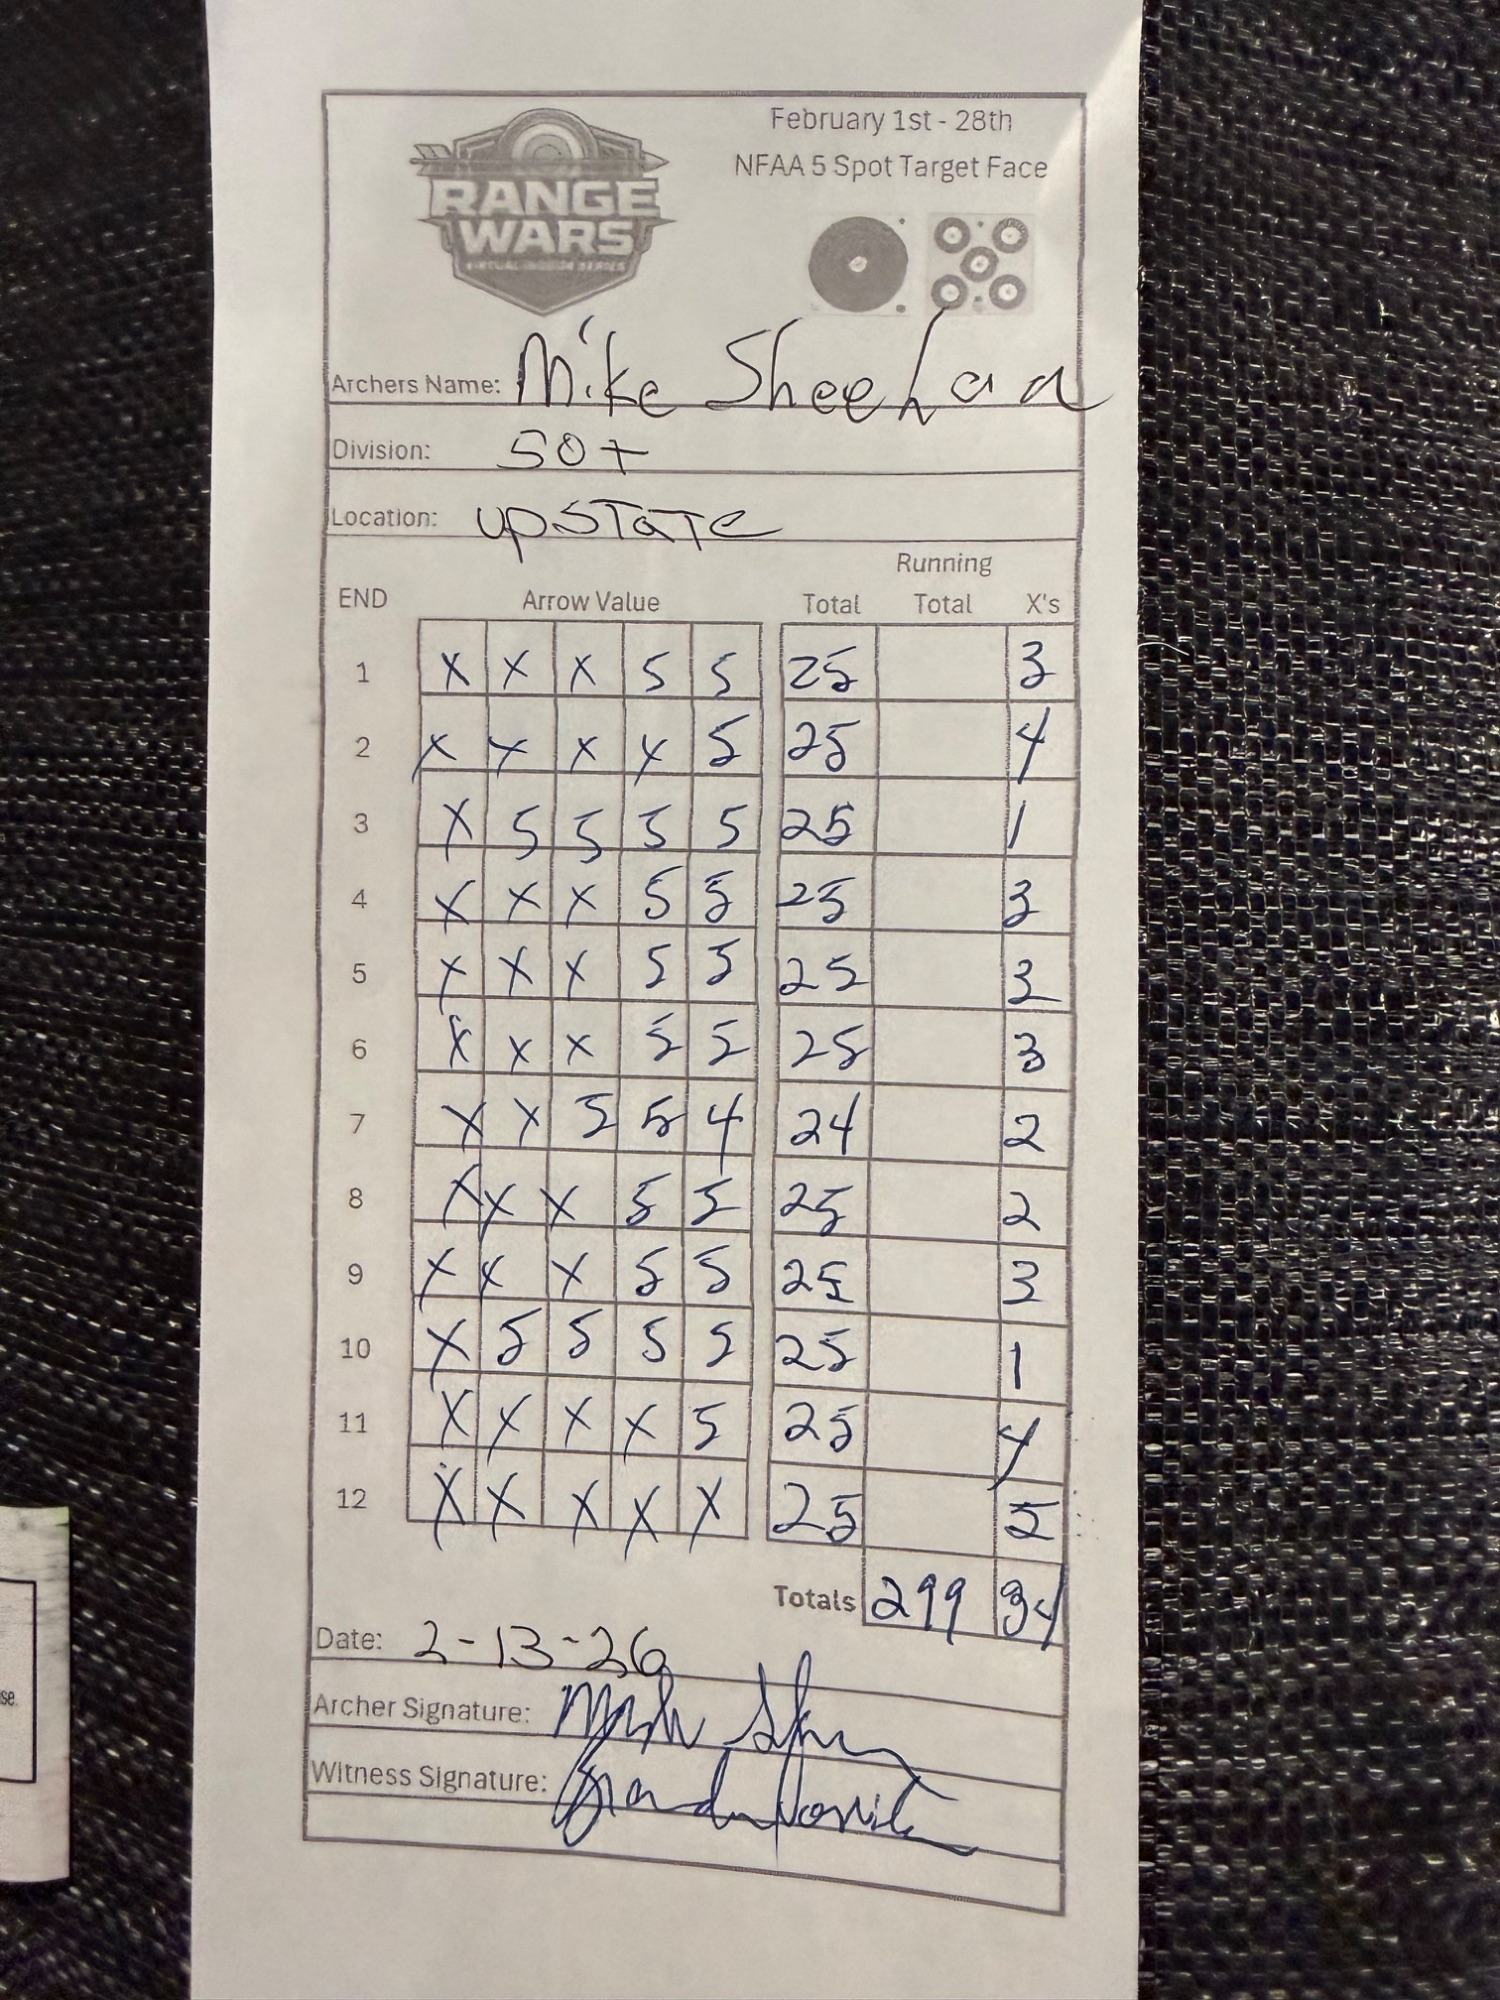 February 1st - 28th
NFAA 5 Spot Target Face
RANGE
WARS
VIRTUAL INDOOR SERIES
Archers Name: Mike Sheehan
Division: 50+
Location: upstate
Running
END Arrow Value Total Total X's
1 X X X 5 5 25 3
2 X X X X 5 25 4
3 X 5 5 5 5 25 1
4 X X X 5 5 25 3
5 X X X 5 5 25 3
6 X X X 5 5 25 3
7 X X 5 5 4 24 2
8 X X X 5 5 25 2
9 X X X 5 5 25 3
10 X 5 5 5 5 25 1
11 X X X X 5 25 4
12 X X X X X 25 5
Totals 299 34
Date: 2-13-26
Archer Signature:
Witness Signature:
se.